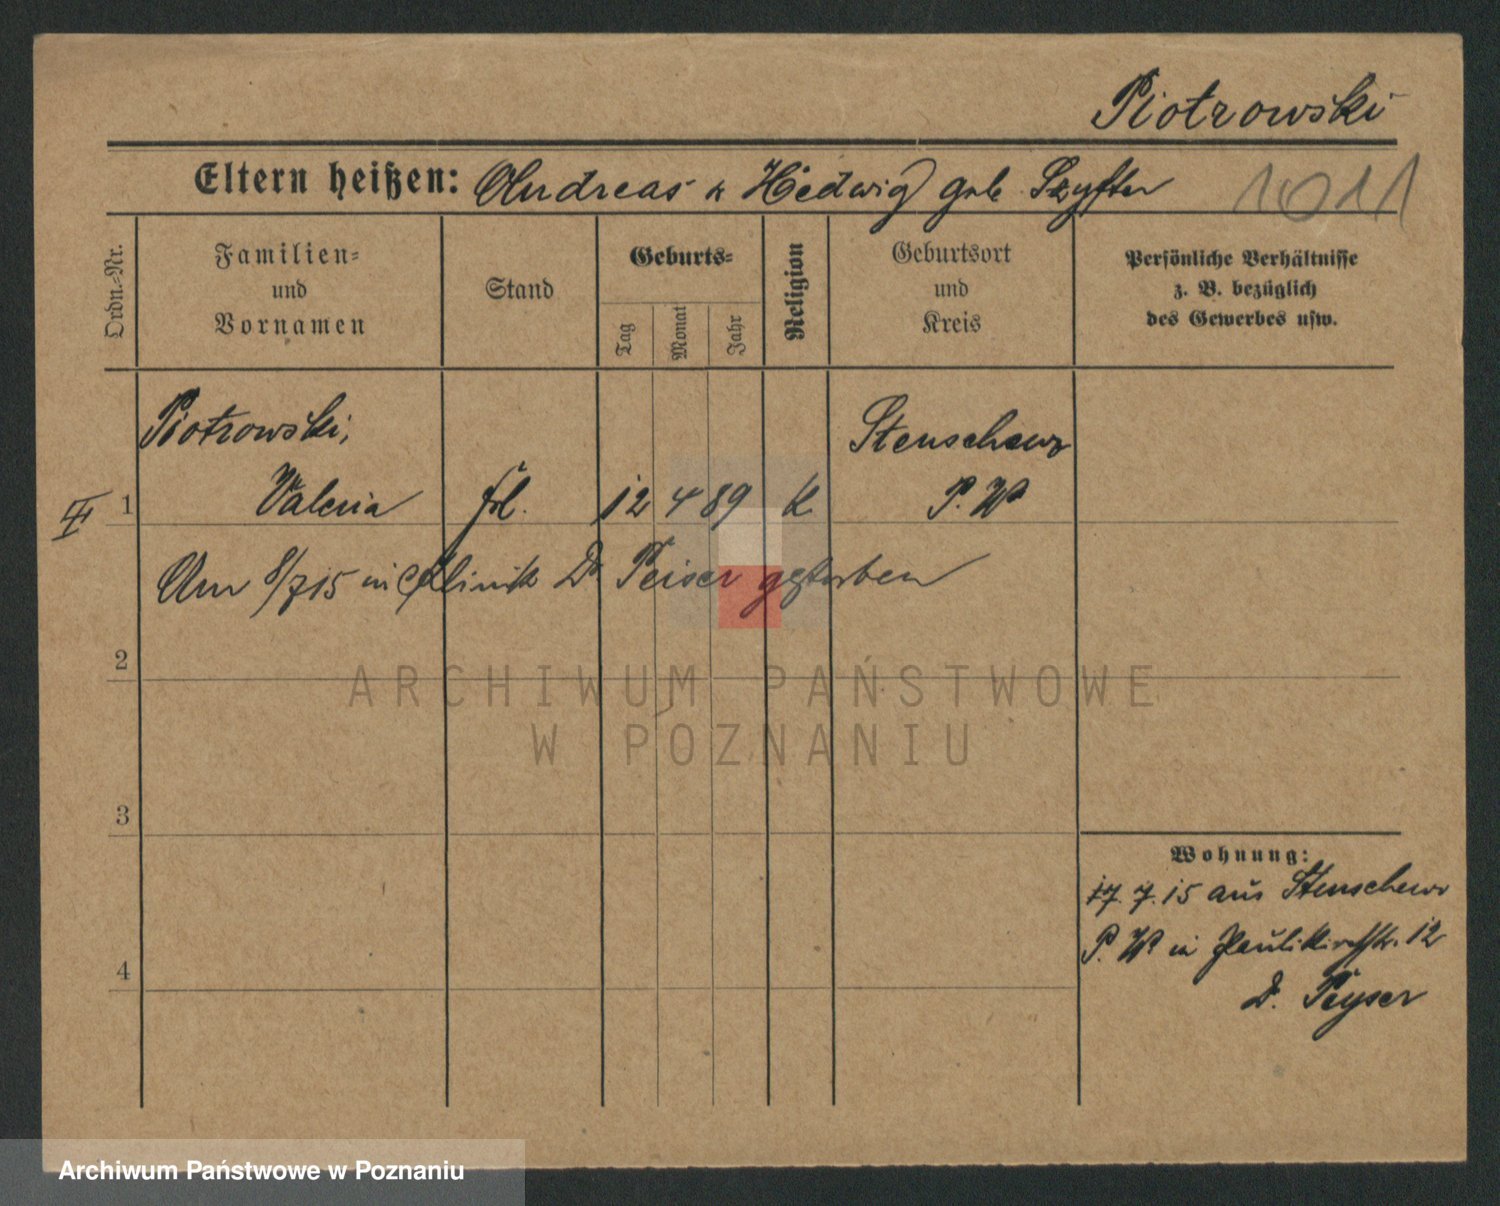 Piotrowski
Eltern heißen: Andreas u Hedwig geb Szyfter
1011
Ordn.-Nr.
Familien-
und
Vornamen
Stand
Geburts-
Tag
Monat
Jahr
Religion
Geburtsort
und
Kreis
Persönliche Verhältnisse
z. B. bezüglich
des Gewerbes usw.
Piotrowski,
Stenschewo
1 Valeria frl. 12 4 89 k. P. W
Am 8/7 15 in Klinik Dr Peiser gestorben
2
ARCHIWUM PAŃSTWOWE
W POZNANIU
3
Wohnung:
7. 15 aus Stenschewo
P. W in Paulikirchstr. 12
4
D. Peyser
Archiwum Państwowe w Poznaniu